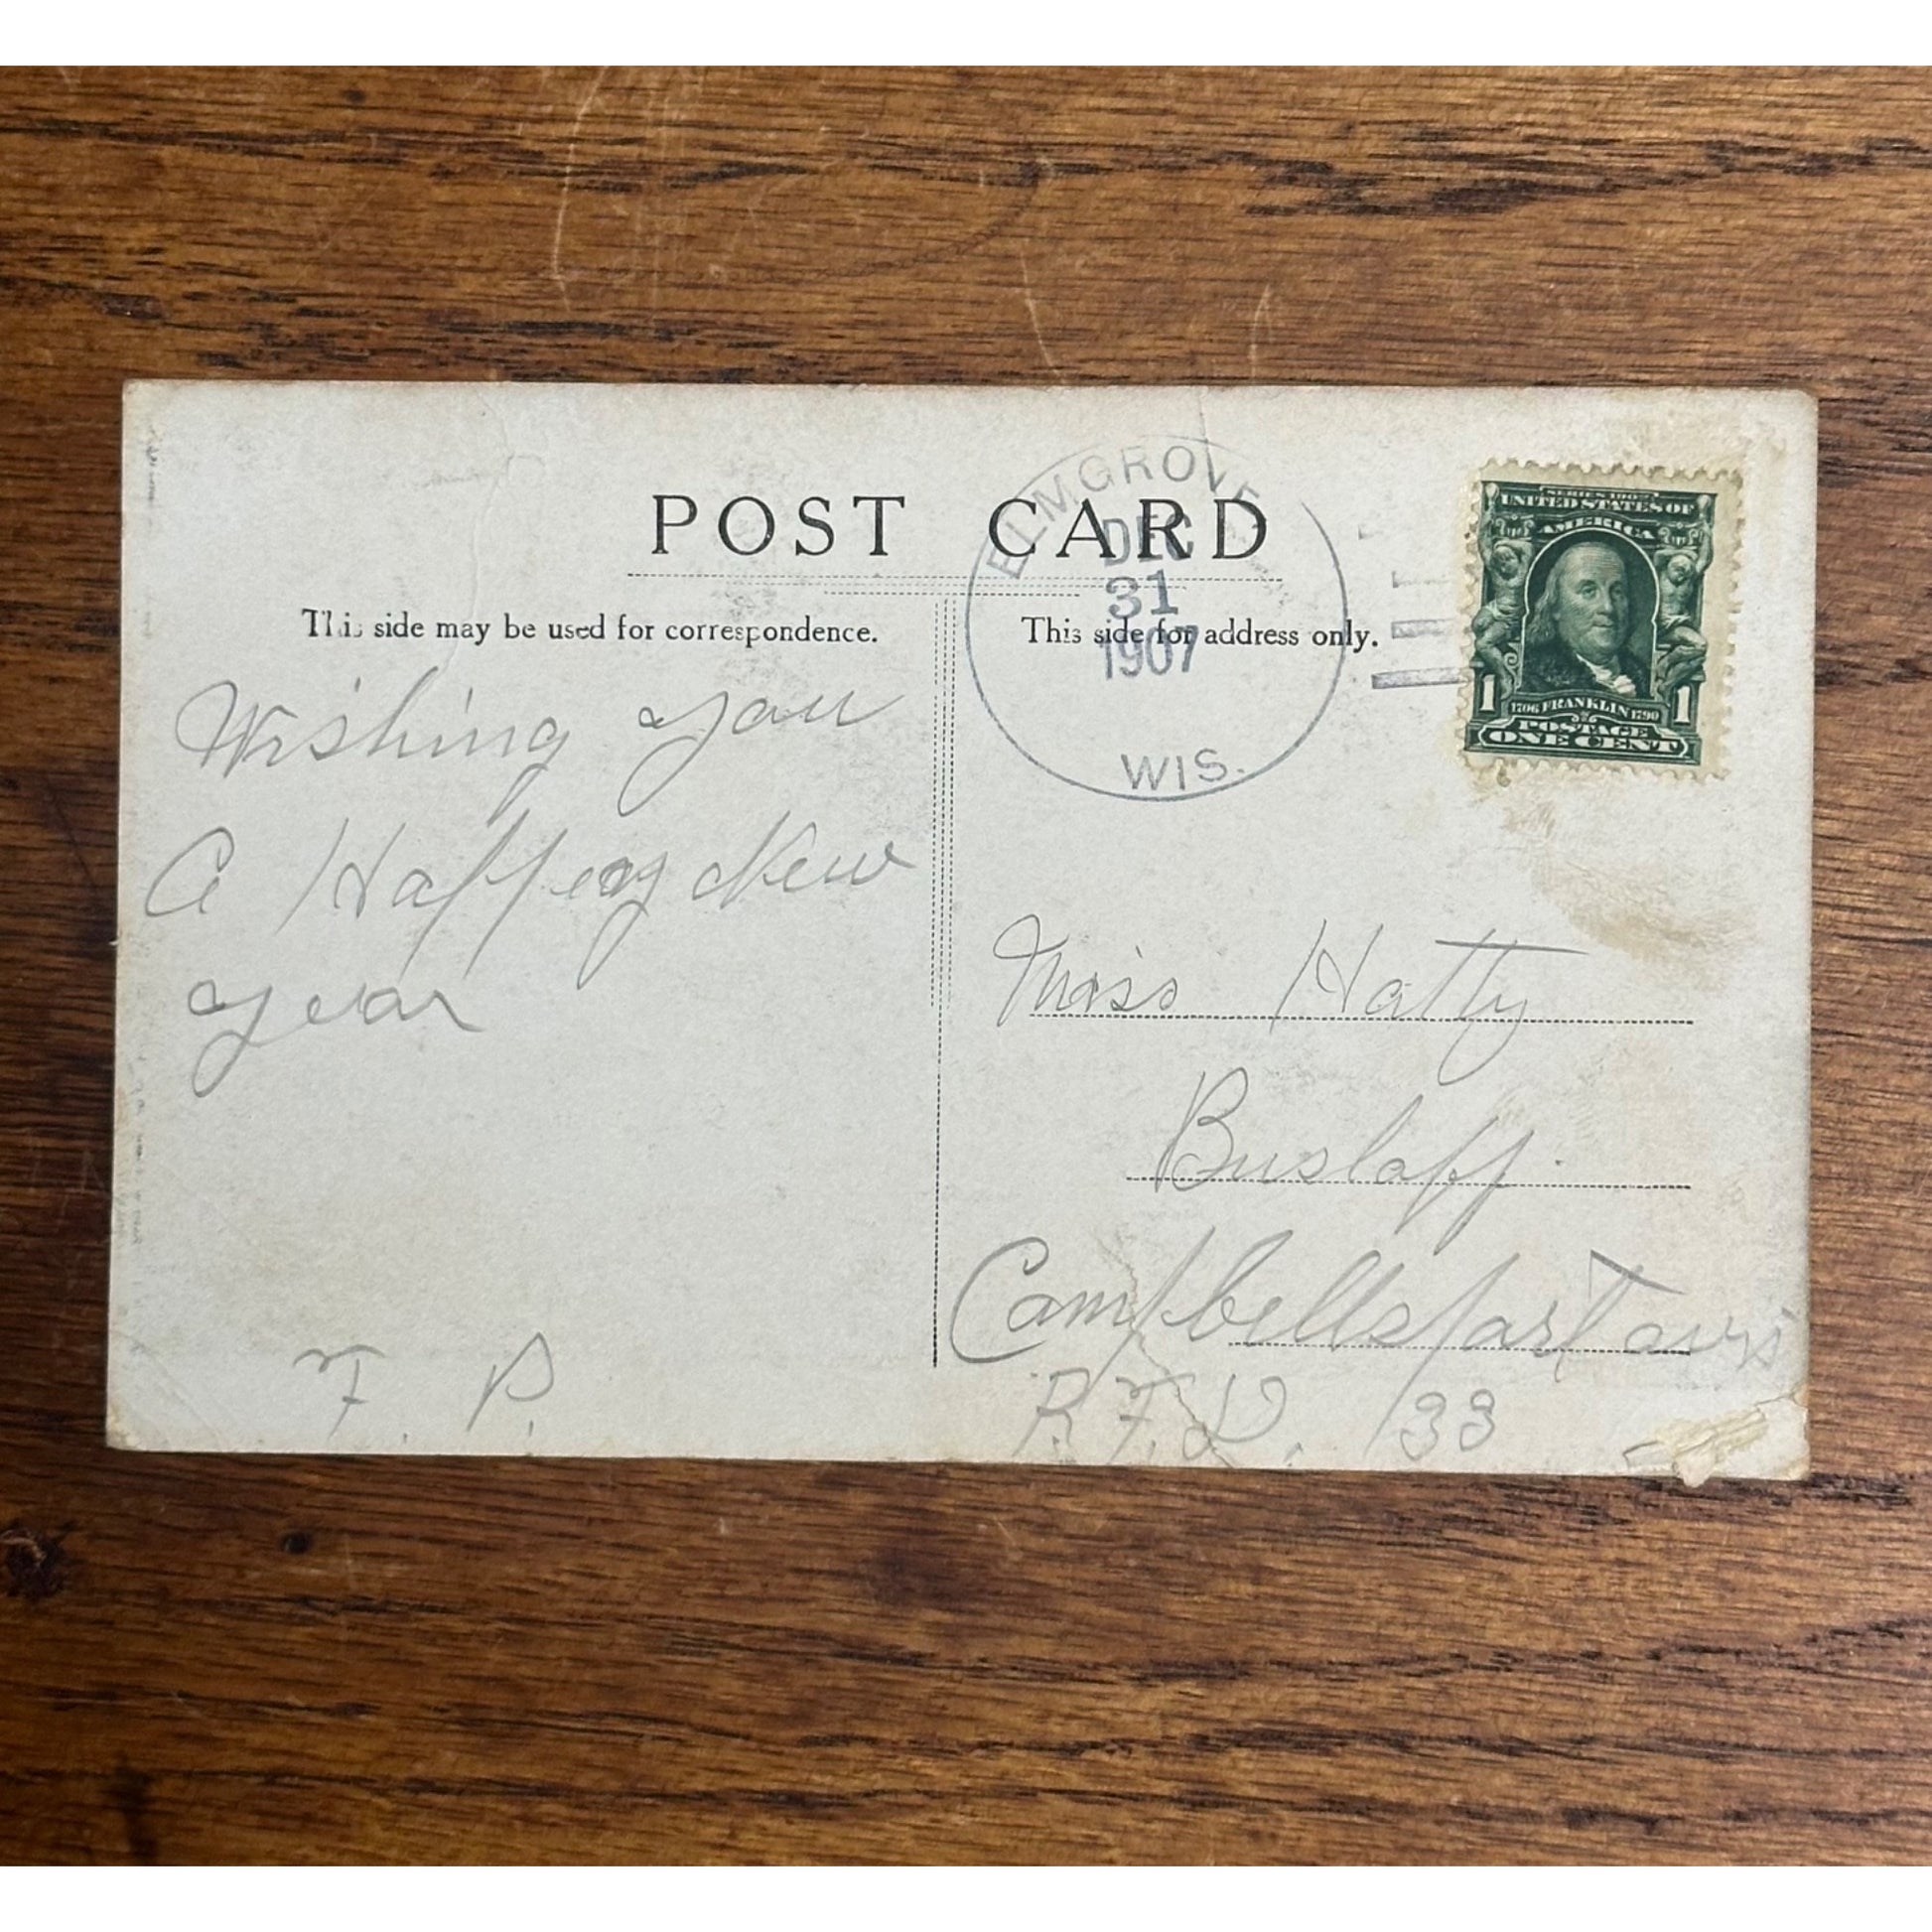 POST CARD
This side may be used for correspondence.
This side for address only.
ELM GROVE
DEC
31
1907
WIS.
SERIES 1902
UNITED STATES OF
AMERICA
1706 FRANKLIN 1790
1 1
POSTAGE
ONE CENT
Wishing you
A Happey New
year
F. P.
Miss Hatty
Buslaff.
Campbellsport
R.F.D. 33